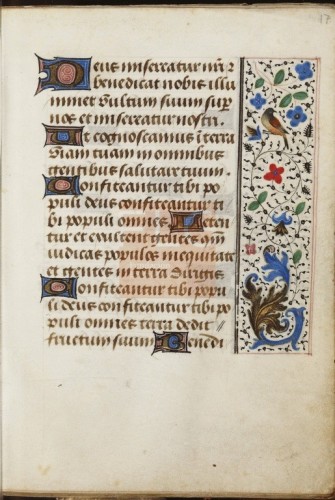 17
Deus misereatur nr̄i ⁊
benedicat nobis illu
minet vultum suum sup̄
nos et misereatur nostri.
Ut cognoscamus ī terra
viam tuam in omnibus
gentibus salutare tuum.
Confiteantur tibi po
puli deus confiteantur ti
bi populi omnes Lete
tur et exultent gentes qm̄
iudicas populos in equitate
et gentes in terra dirigis
Confiteantur tibi popu
li deus confiteantur tibi po
puli omnes terra dedit
fructum suum Benedi